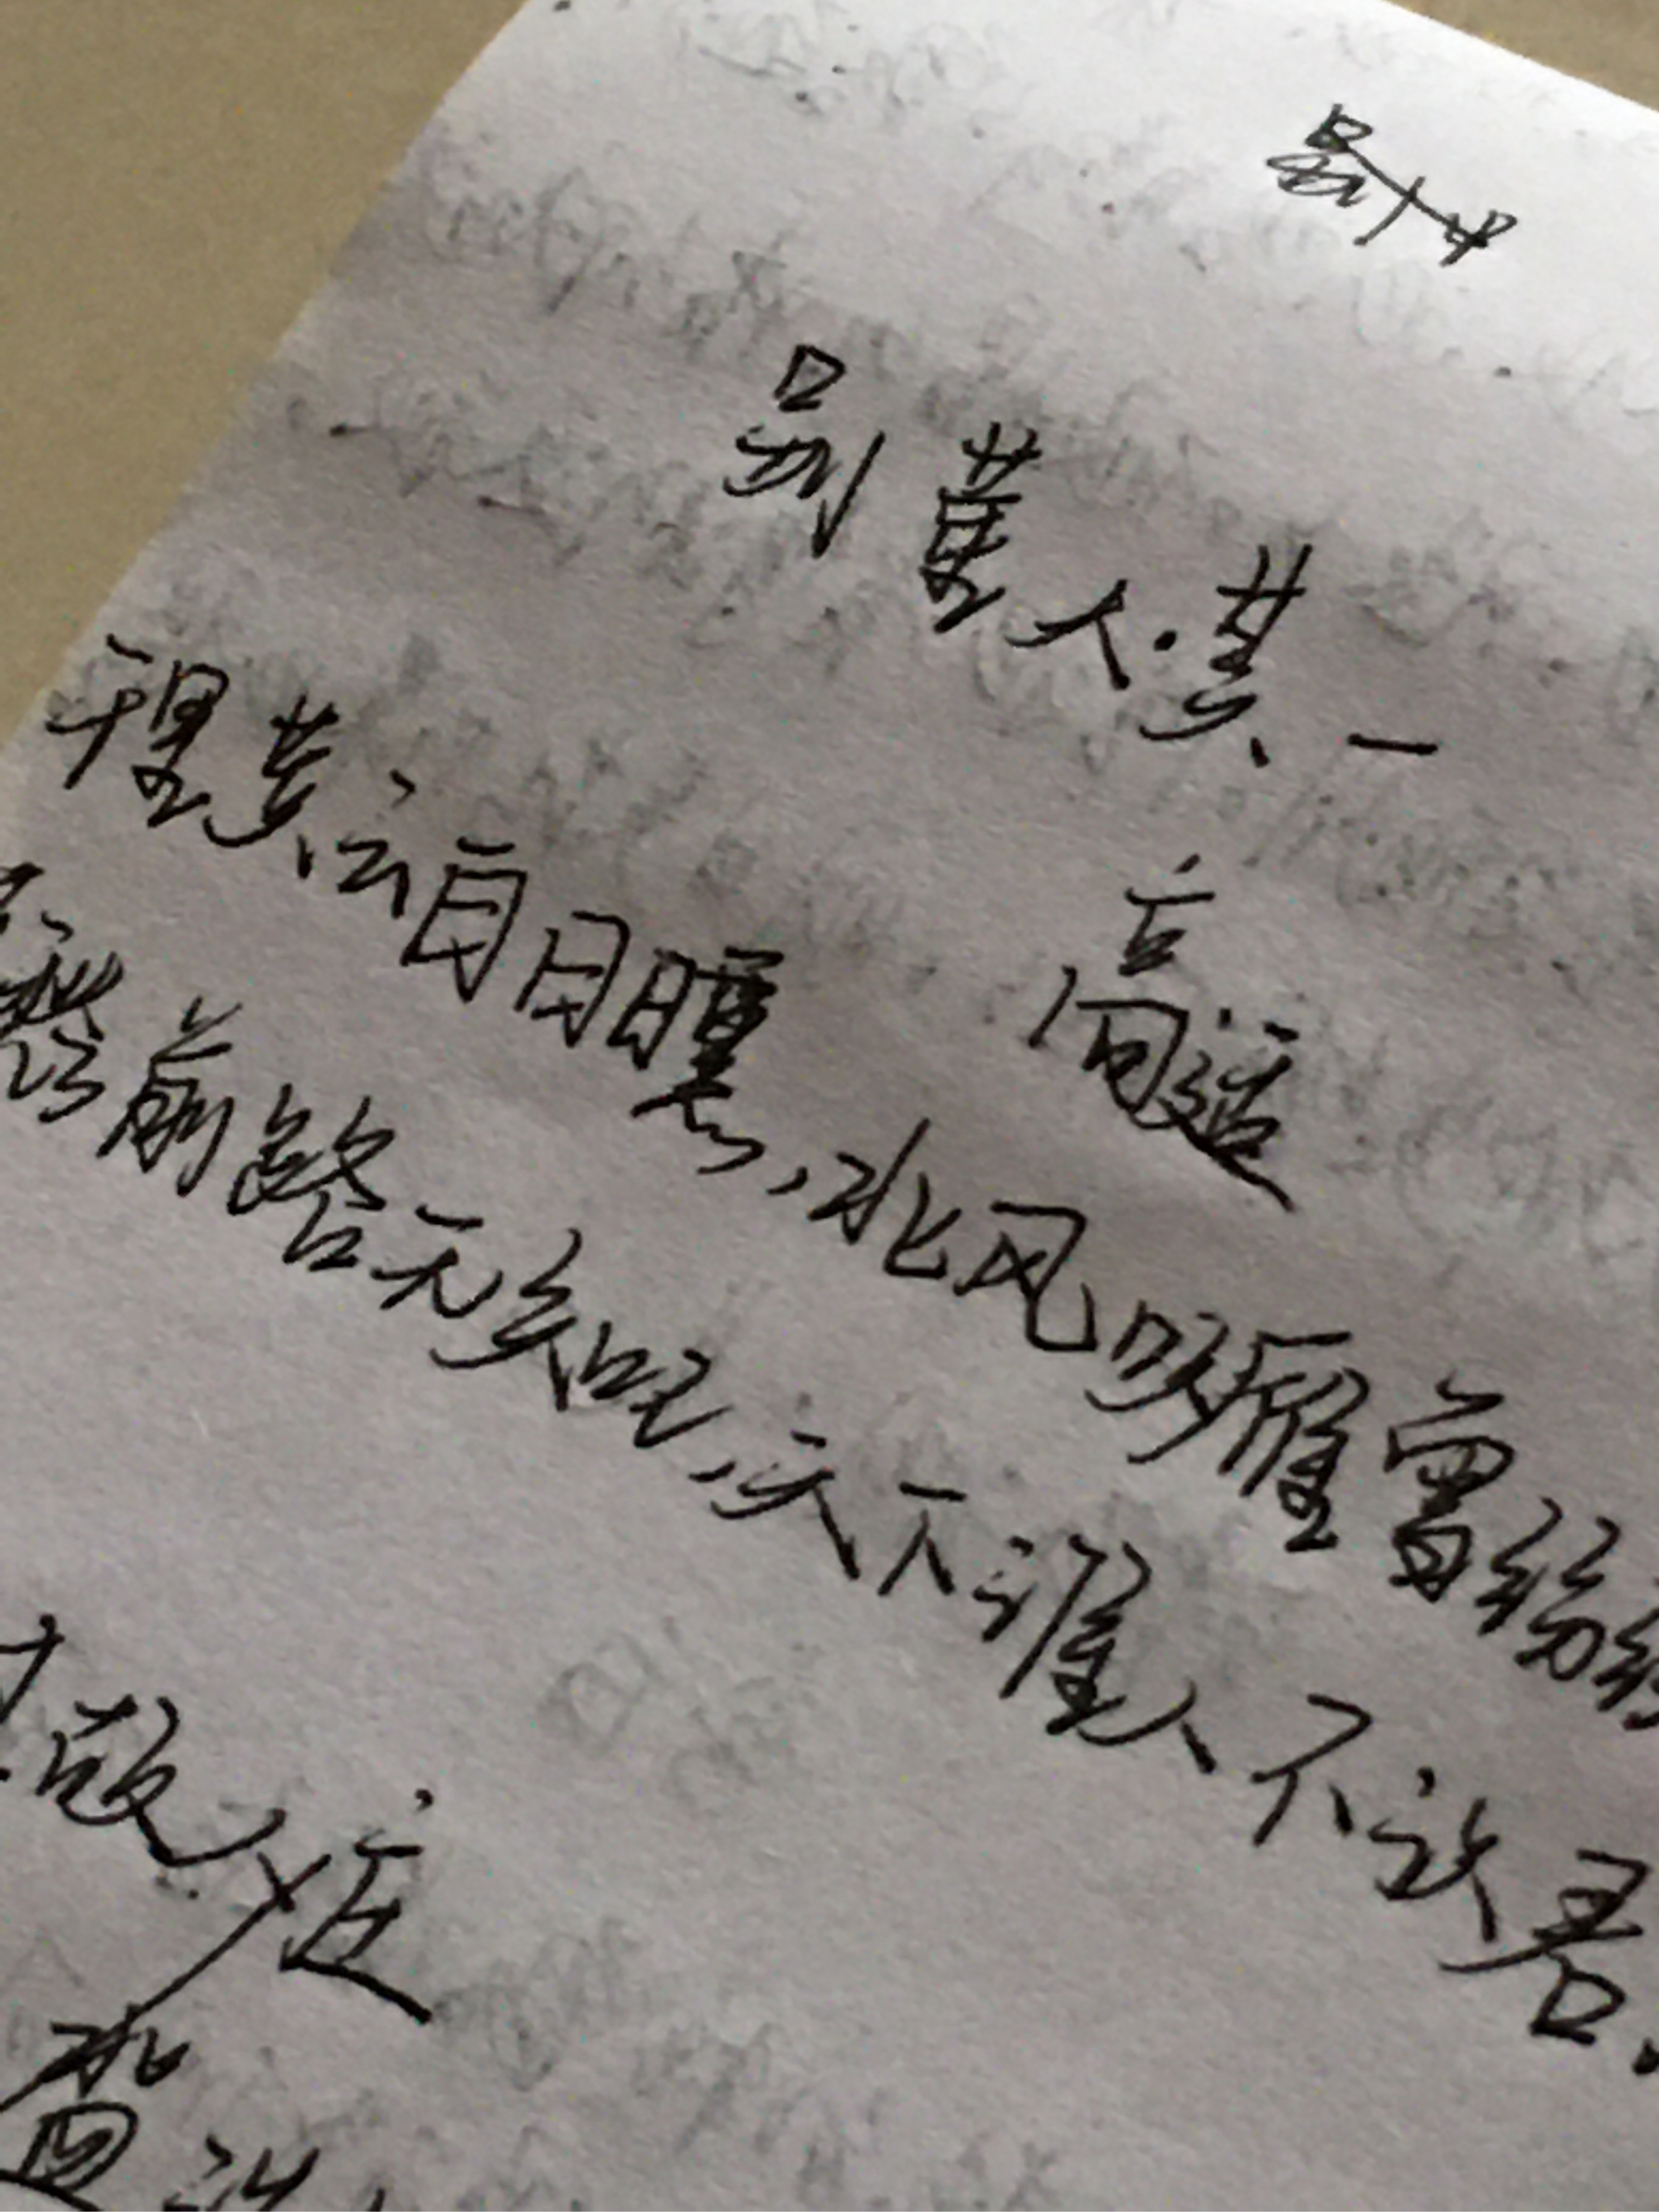 别董大·其一
高适
千里黄云白日曛,北风吹雁雪纷纷
愁前路无知己,天下谁人不识君.